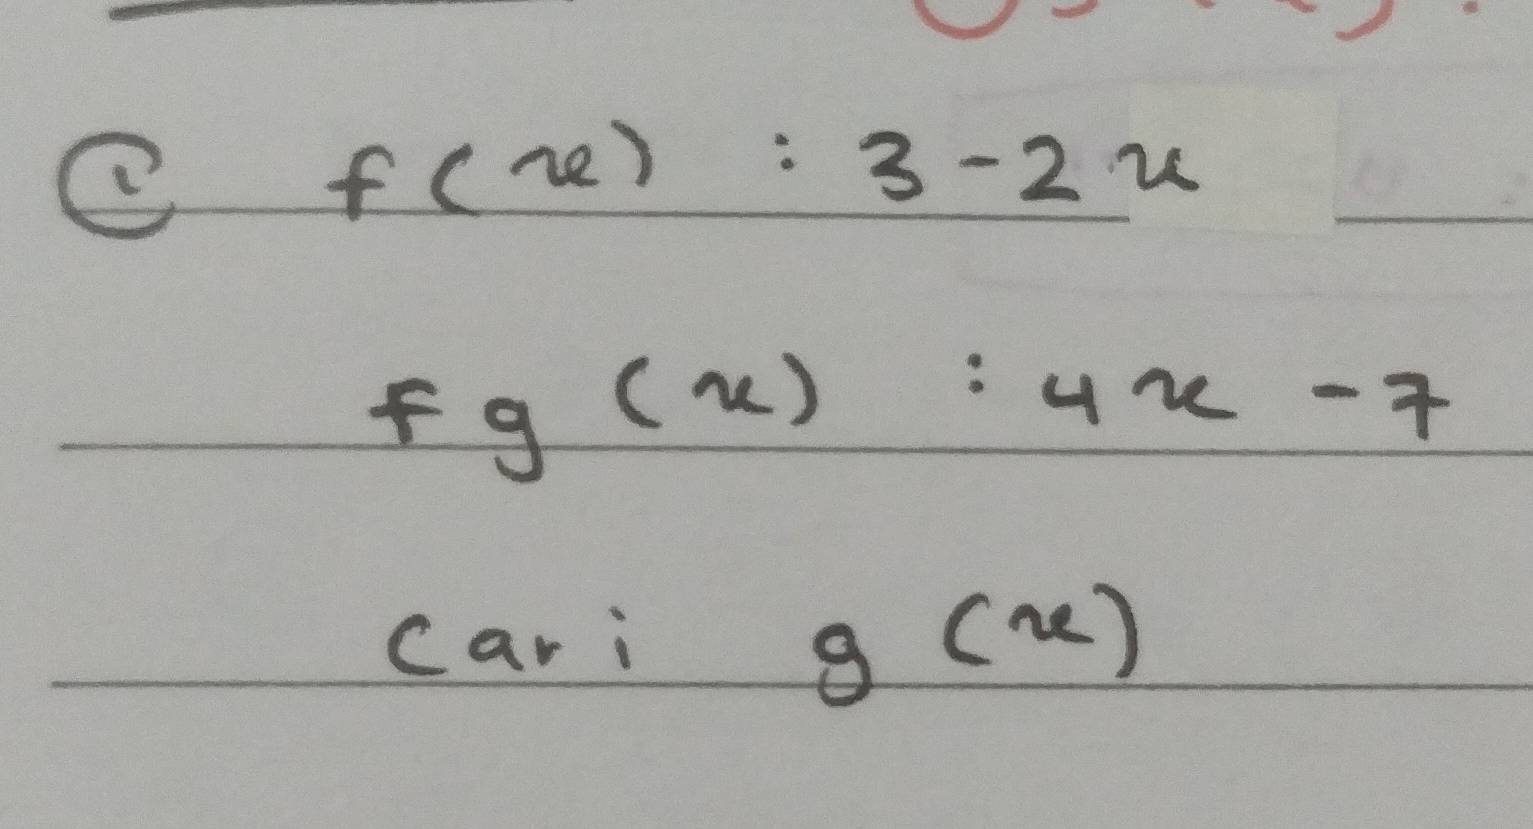 ① f(x) : 3 - 2x
fg(x) : 4x - 7
Cari g(x)